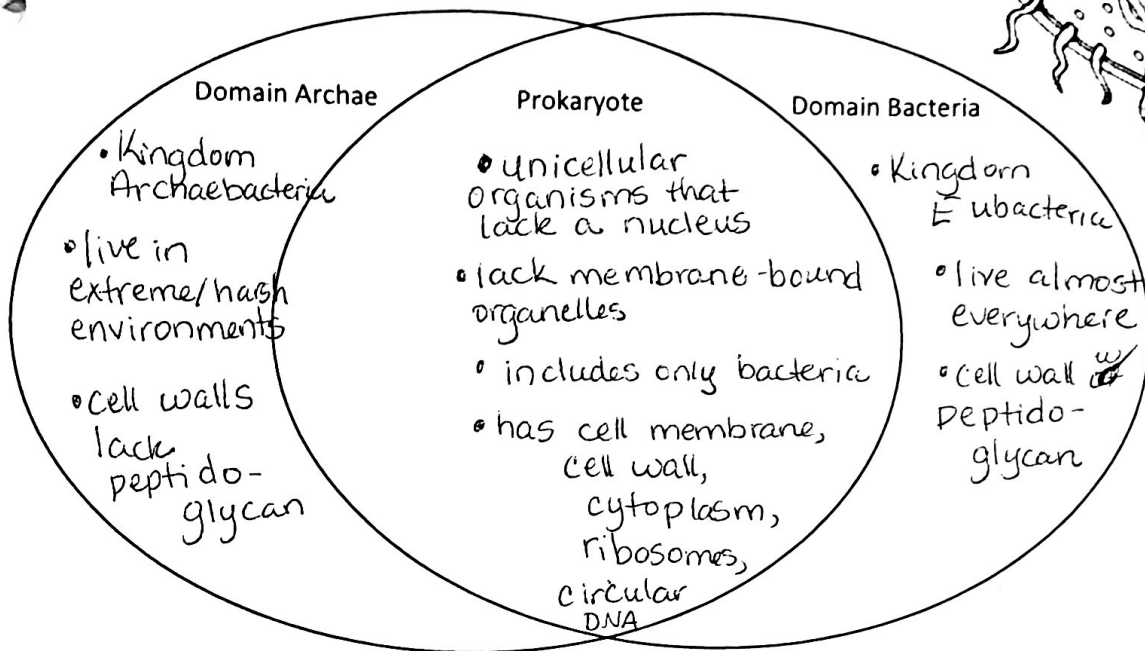 Domain Archae
• Kingdom
Archaebacteria
• live in
extreme/harsh
environments
• cell walls
lack
peptido-
glycan
Prokaryote
• unicellular
organisms that
lack a nucleus
• lack membrane-bound
organelles
• includes only bacteria
• has cell membrane,
cell wall,
cytoplasm,
ribosomes,
circular
DNA
Domain Bacteria
• Kingdom
Eubacteria
• live almost
everywhere
• cell wall w/
peptido-
glycan